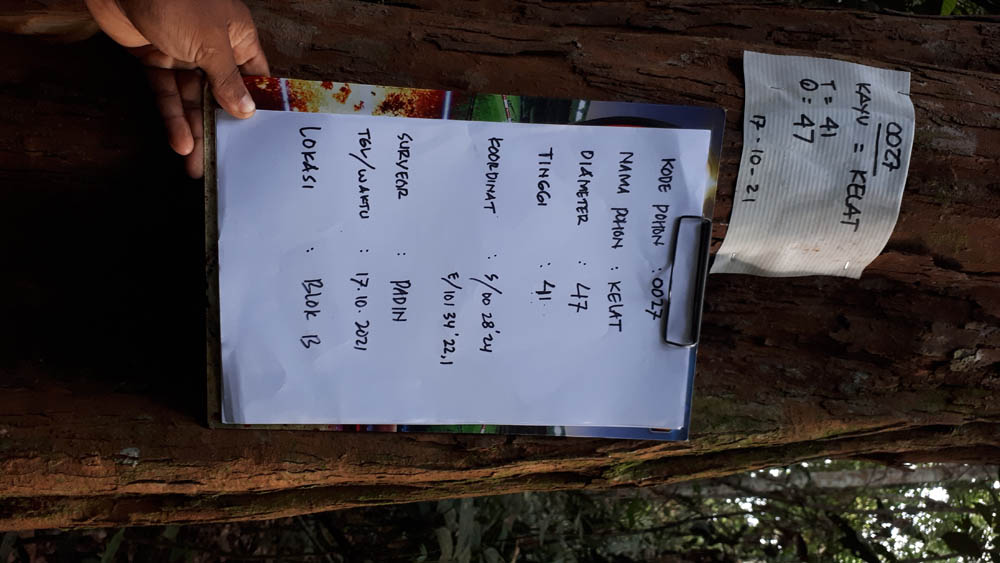 0027
KAYU = KELAT
T = 41
Ø = 47
17-10-21
KODE POHON : 0027
NAMA POHON : KELAT
DIAMETER : 47
TINGGI : 41
KOORDINAT : S/00 28'24
E/101 34'22,1
SURVEOR : PADIN
TGL/WAKTU : 17.10.2021
LOKASI : BLOK B